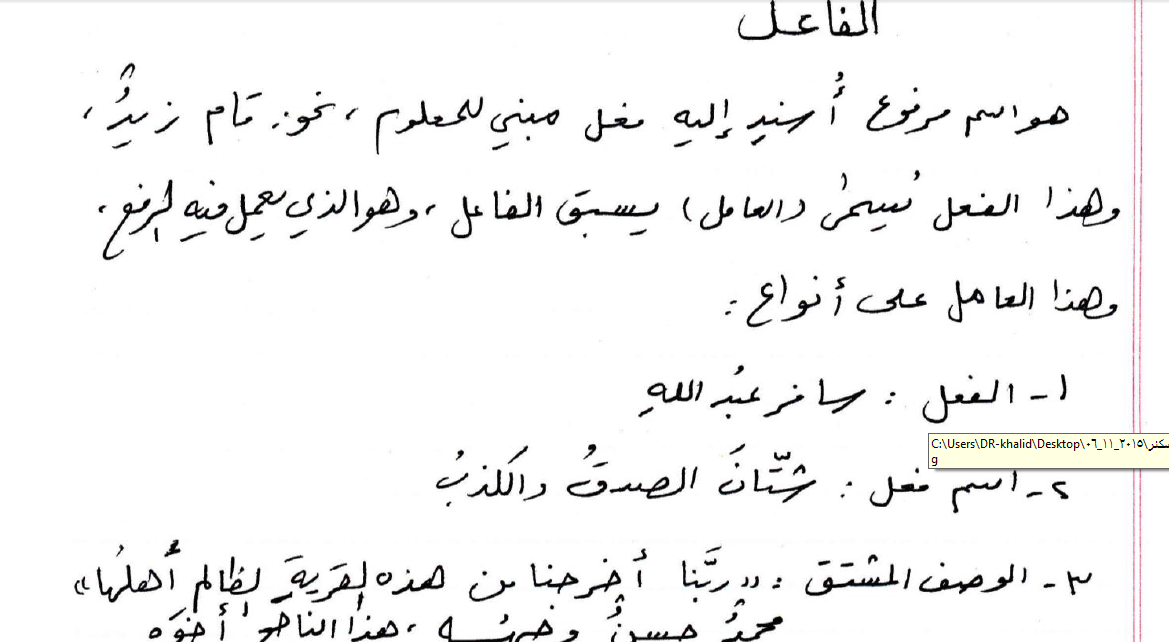 الفاعل
هو اسم مرفوع أُسنِد إليه فعل مبني للمعلوم ، نحو: قام زيدٌ ،
وهذا الفعل يُسمى (العامل) يسبق الفاعل ، وهو الذي يعمل فيه الرفع ،
وهذا العامل على أنواع :
١- الفعل : سافر عبدُ اللهِ
C:\Users\DR-khalid\Desktop\٠٦_١١_٢٠١٥\سكنر
g
٢- اسم فعل : شتّانَ الصدقُ والكذبُ
٣- الوصف المشتق : « ربَّنا أخرجنا من هذه القريةِ الظالم أهلُها »
محمدٌ حسنٌ وجهُه ، هذا الناجحُ أخوه